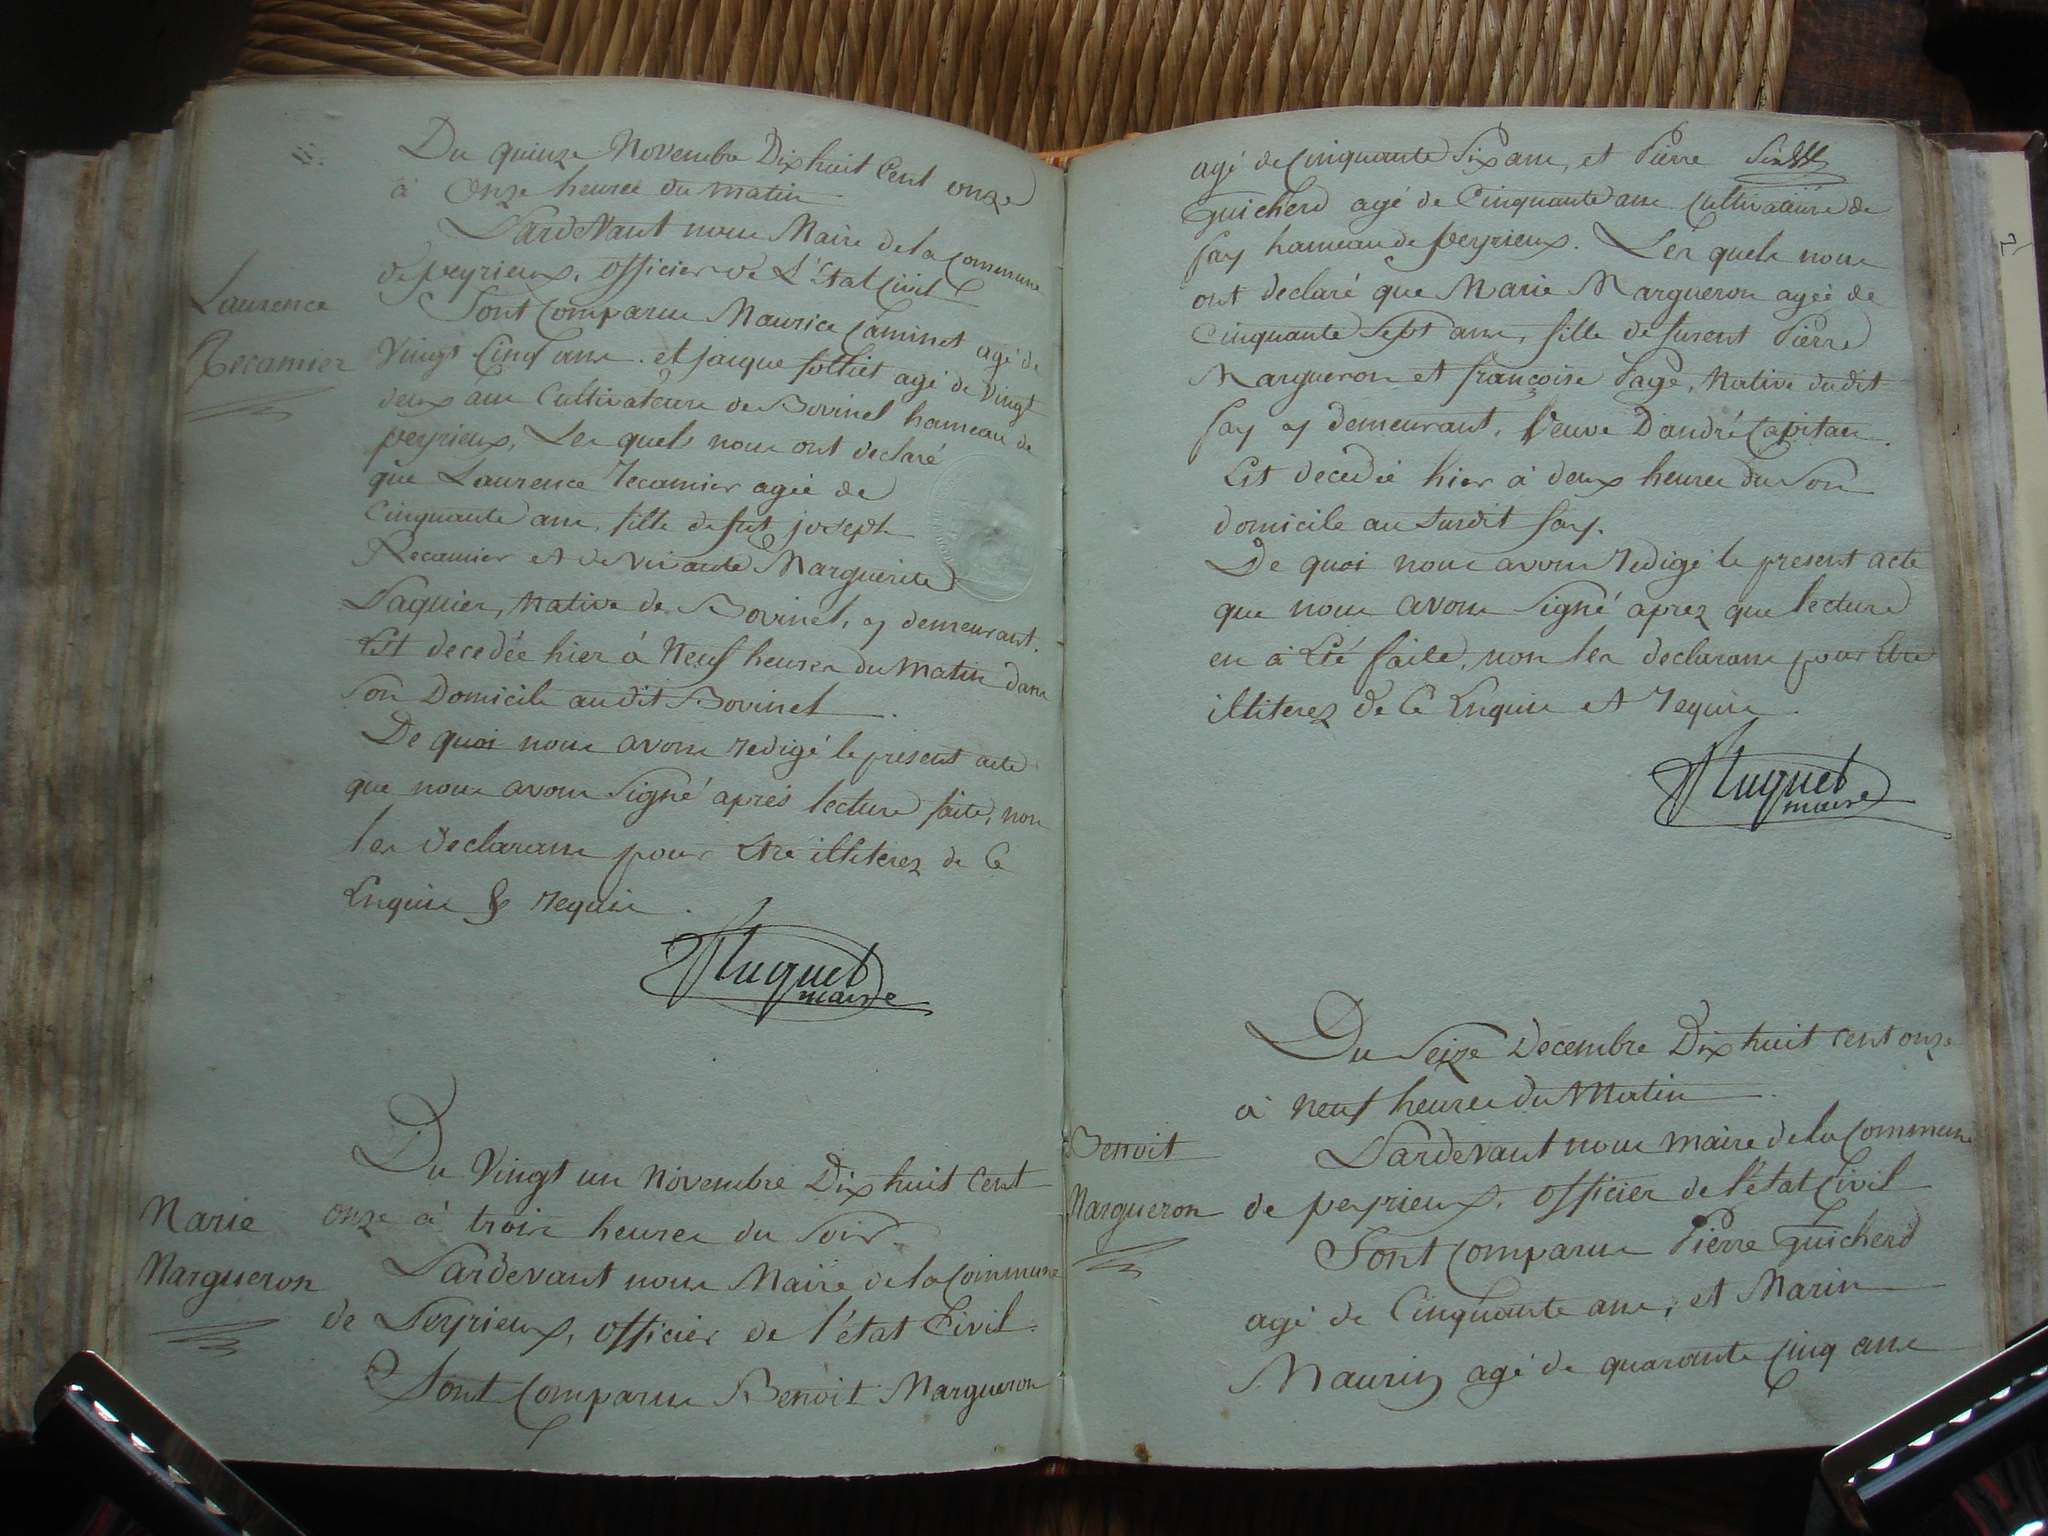 Du quinze Novembre Dix huit Cent onze
à Onze heures du matin
Pardevant nous Maire de la Commune
de peyrieux, officier de L'Etat Civil
Laurence
Recamier
Sont Comparus Maurice Caminet agé de
Vingt Cinq ans et jacque folliet agé de Vingt
deux ans Cultivateurs de Bovinel hameau de
peyrieux, Les quels nous ont declaré
que Laurence Recamier agée de
Cinquante ans, fille de feu joseph
Recamier et de vivante Marguerite
Paquier, Native de Bovinel, y demeurant.
Est decedée hier à Neuf heures du Matin dans
son Domicile audit Bovinel.
De quoi nous avons redigé le present acte
que nous avons signé aprés lecture faite, non
les declarans pour être illiterez de ce
Enquis & requis.
Huguet
maire
Du Vingt un Novembre Dix huit Cent
onze à trois heures du soir
Marie
Margueron
Pardevant nous Maire de la Commune
de Peyrieux, officier de l'état Civil.
Sont Comparus Benoit Margueron
agé de Cinquante Six ans, et Pierre
Guicherd agé de Cinquante ans Cultivateurs de
fay hameau de peyrieux. Les quels nous
ont declaré que Marie Margueron agée de
Cinquante Sept ans, fille de furent Pierre
Margueron et françoise Page, Native dudit
fay y demeurant, Veuve D'andré Capitan.
Est decedée hier à deux heures du Soir
domicile au susdit fay.
De quoi nous avons redigé le present acte
que nous avons signé aprez que lecture
en à été faite, non les declarans pour être
illiterez de ce Enquis et requis.
Huguet
maire
Du Seize Decembre Dix huit cent onze
à neuf heures du Matin.
Benoit
Margueron
Pardevant nous maire de la Commune
de peyrieux, officier de l'état Civil
Sont Comparus Pierre Guicherd
agé de Cinquante ans, et Marin
Maurin agé de quarante Cinq ans